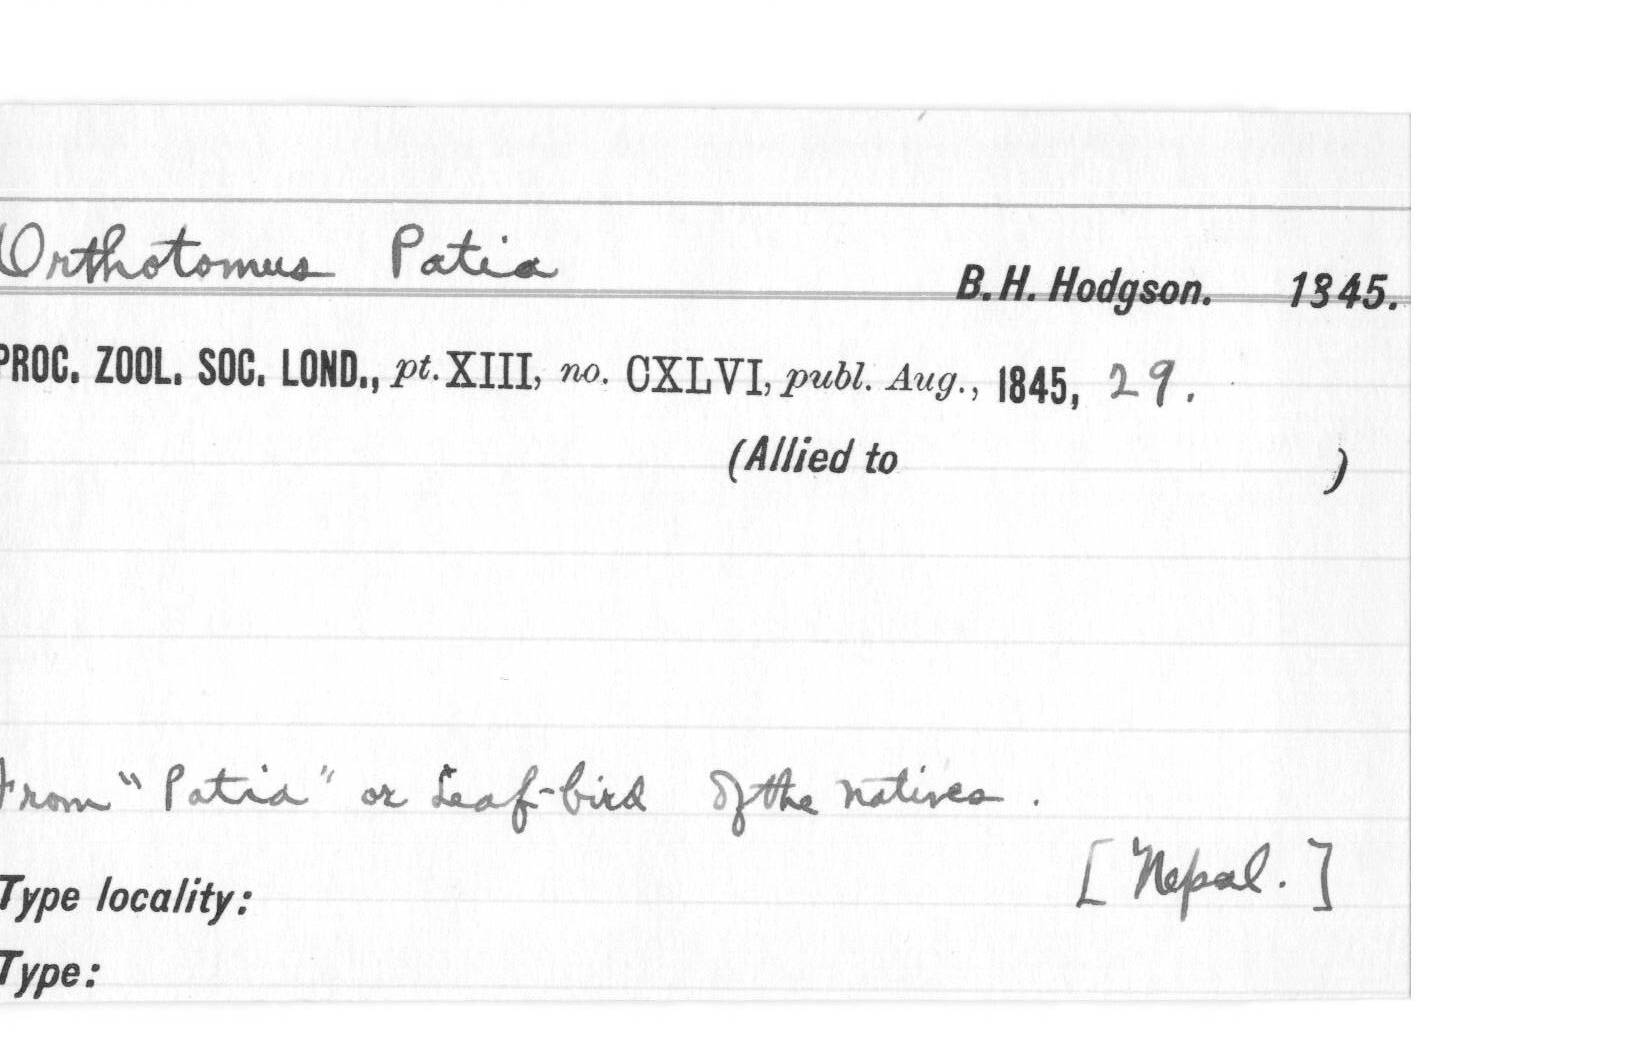 Orthotomus Patia
B. H. Hodgson. 1845.
PROC. ZOOL. SOC. LOND., pt. XIII, no. CXLVI, publ. Aug., 1845, 29.
(Allied to )
From "Patia" or Leaf-bird of the natives.
[Nepal.]
Type locality:
Type: